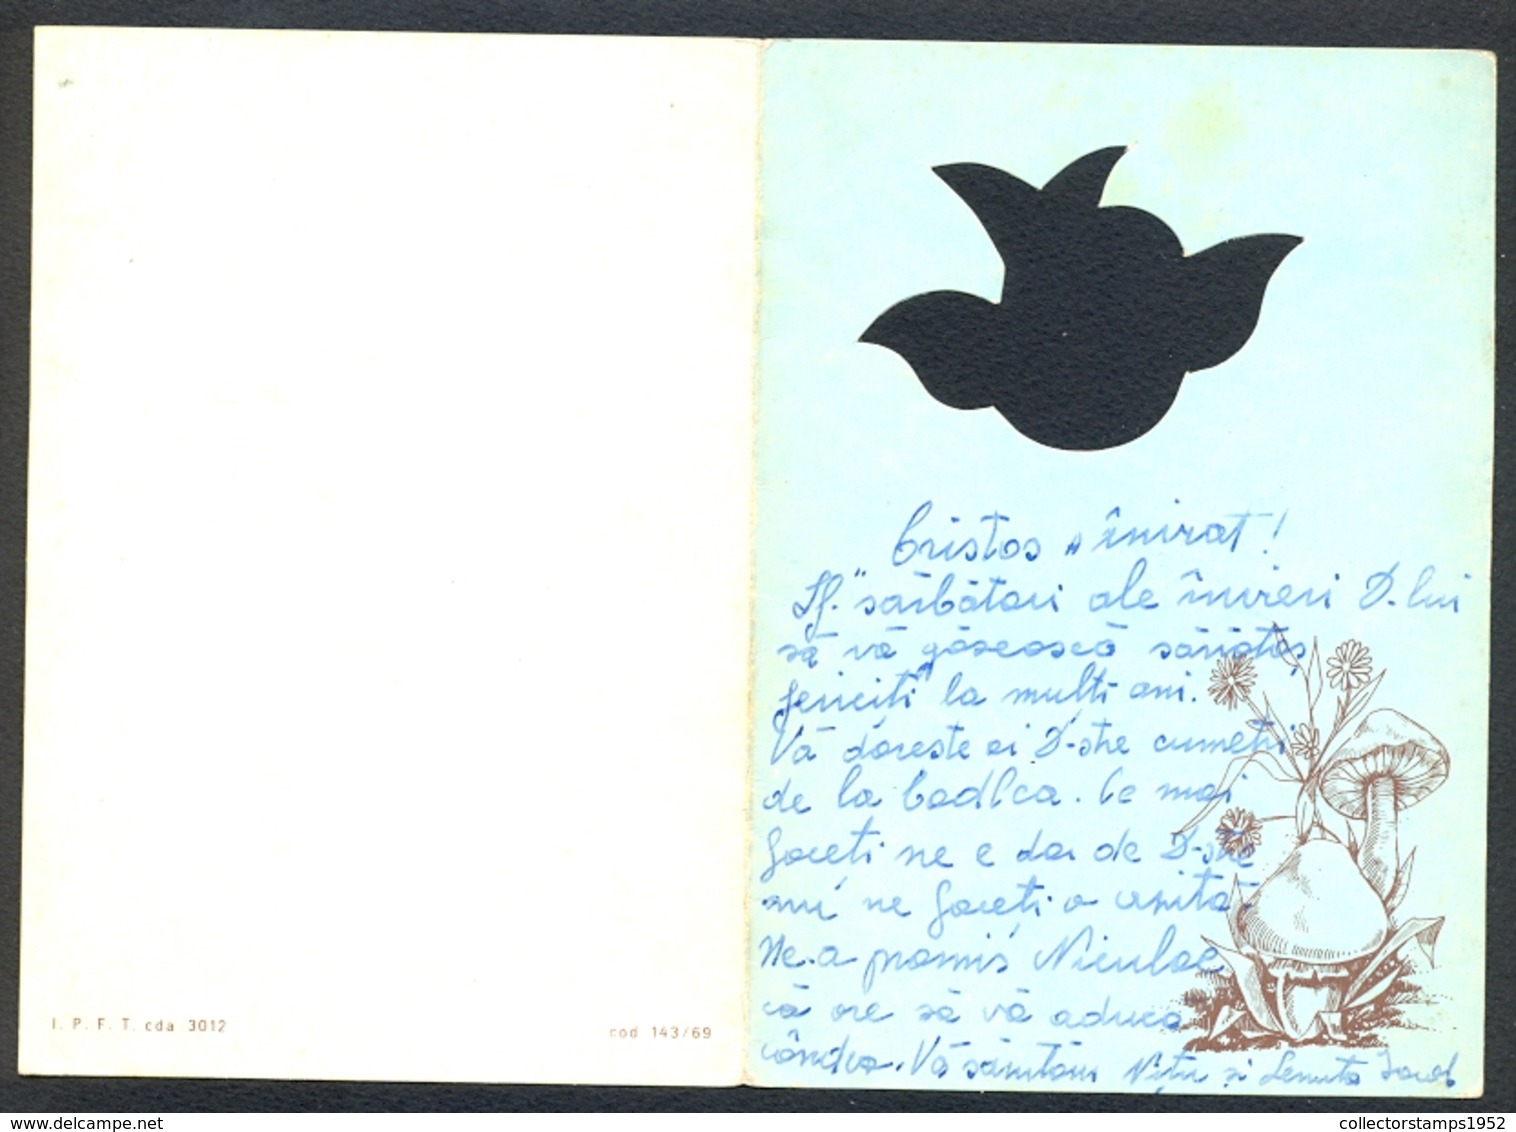 Cristos a înviat!
Sf. sărbători ale învieri D-lui
să vă găsească sănătoși
fericiți la mulți ani.
Vă dorește ai D-stre cumetri
de la Codlea. Ce mai
faceți ne e dor de D-stre
nu ne faceți o vizită.
Ne-a promis Niculae
că are să vă aducă
cândva. Vă sărutăm Nițu și Lenuta Iacob
I. P. F. T. cda 3012
cod 143/69
collectorstamps1952
delcampe.net